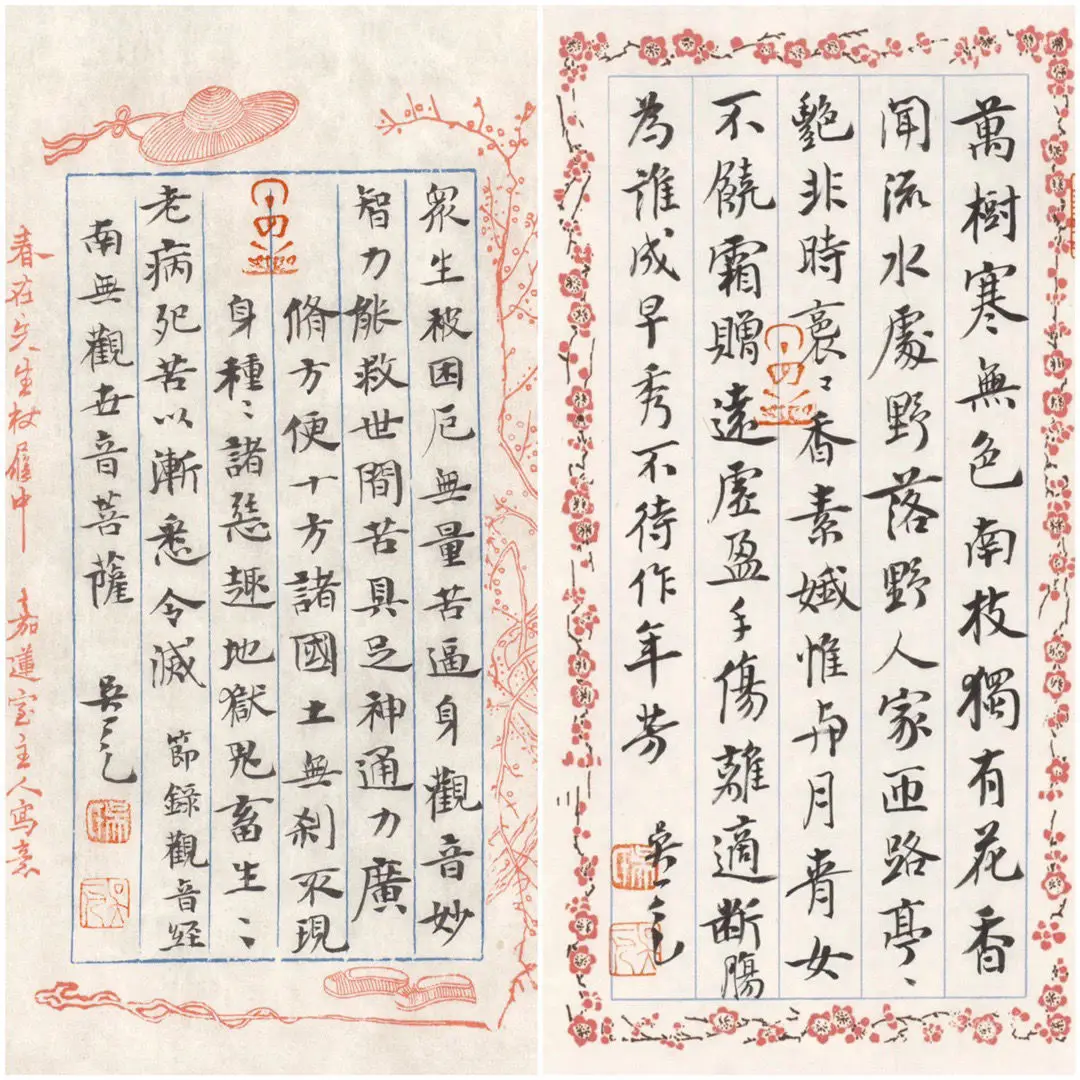 眾生被困厄無量苦逼身觀音妙
智力能救世間苦具足神通力廣
脩方便十方諸國土無刹不現
身種〻諸惡趣地獄鬼畜生〻
老病死苦以漸悉令滅 節錄觀音經
南無觀世音菩薩 吳
春在先生杖履中 嘉蓮室主人寫意
萬樹寒無色南枝獨有花香
聞流水處野落野人家匝路亭〻
艷非時裛〻香素娥惟与月青女
不饒霜贈遠虛盈手傷離適斷腸
為誰成早秀不待作年芳 吳